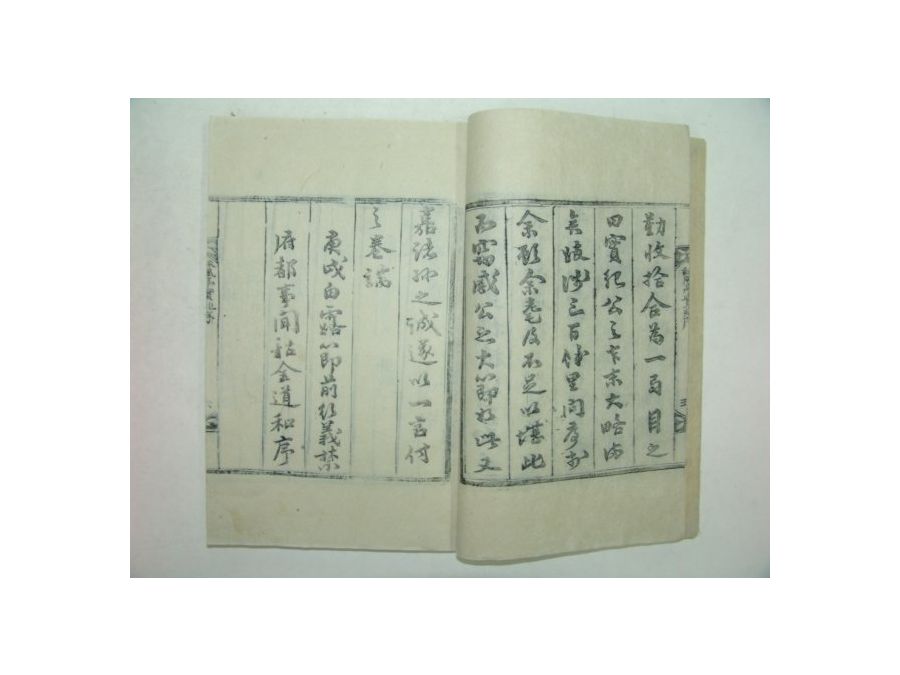 勤收拾合為一局目之
曰實紀公之卞京大略
跋涉三百餘里問序於
余顧余耄及不足以堪此
而窃感公之大節如此又
嘉諸孫之誠遂以一言付
之卷端
庚戌白露節前行義禁
府都事聞韶金道和序